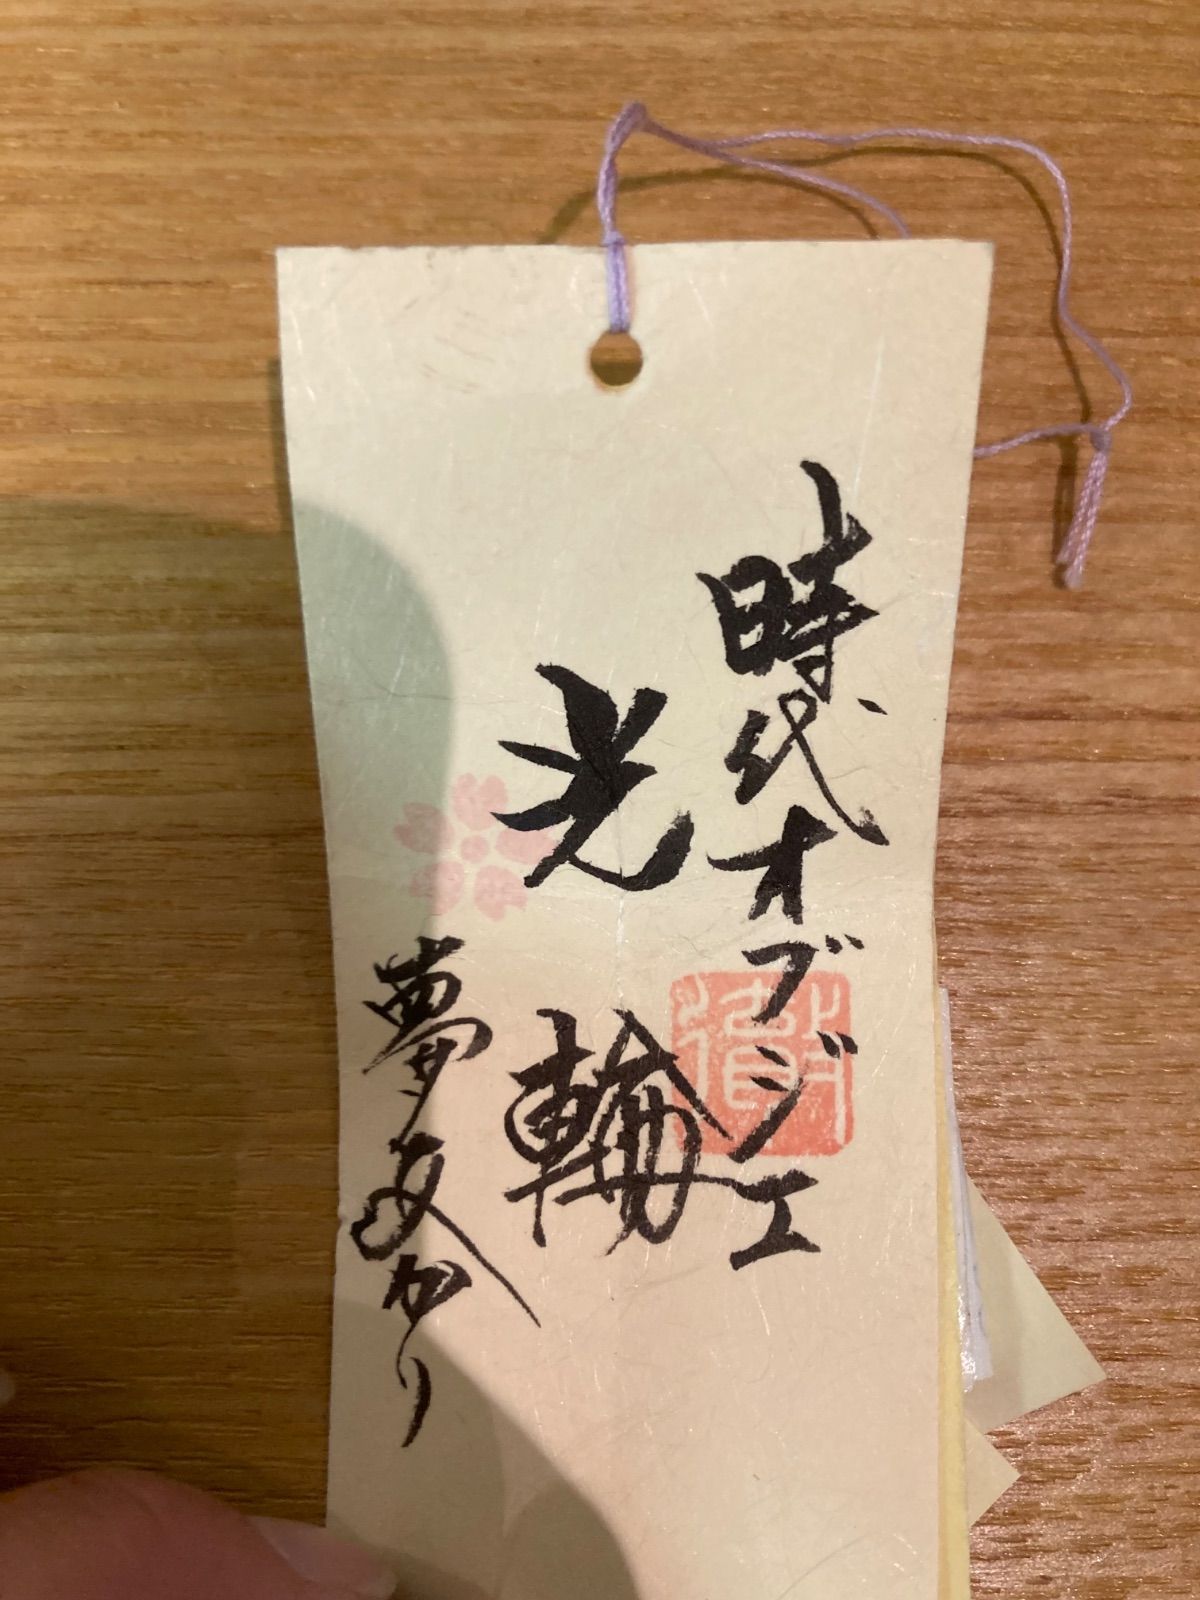 時代オブジェ
光輪
夢あかり